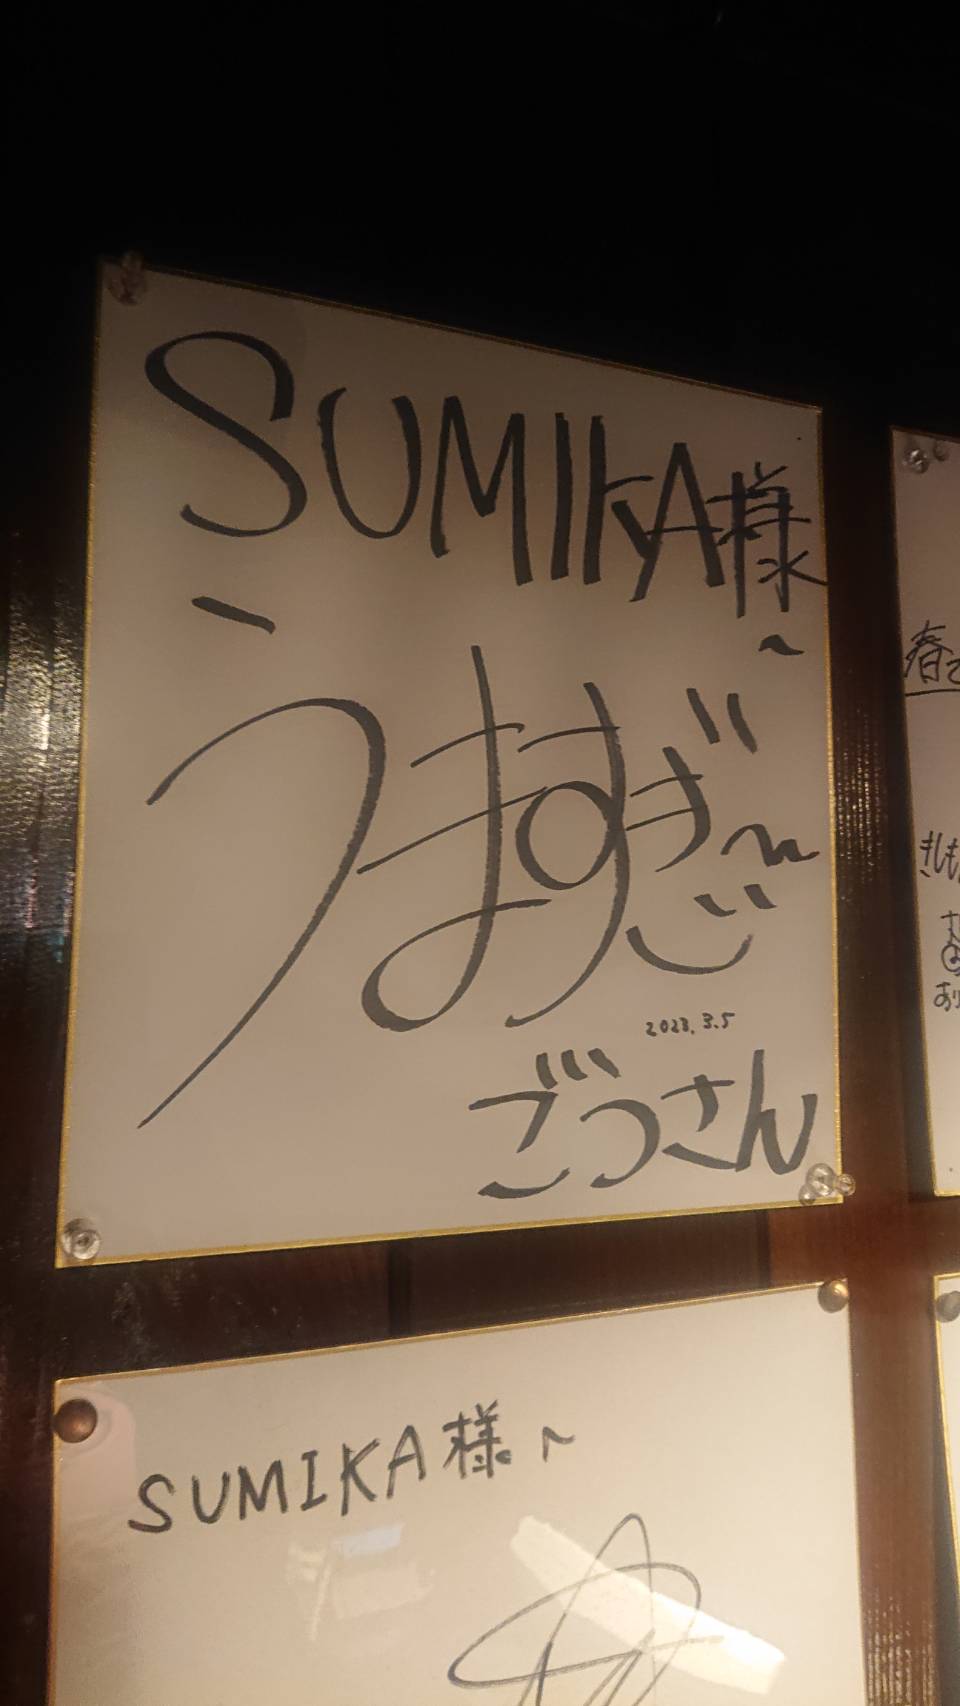 SUMIKA様
〜
うますぎ〜
2023.3.5
ごっさん
SUMIKA様〜
春